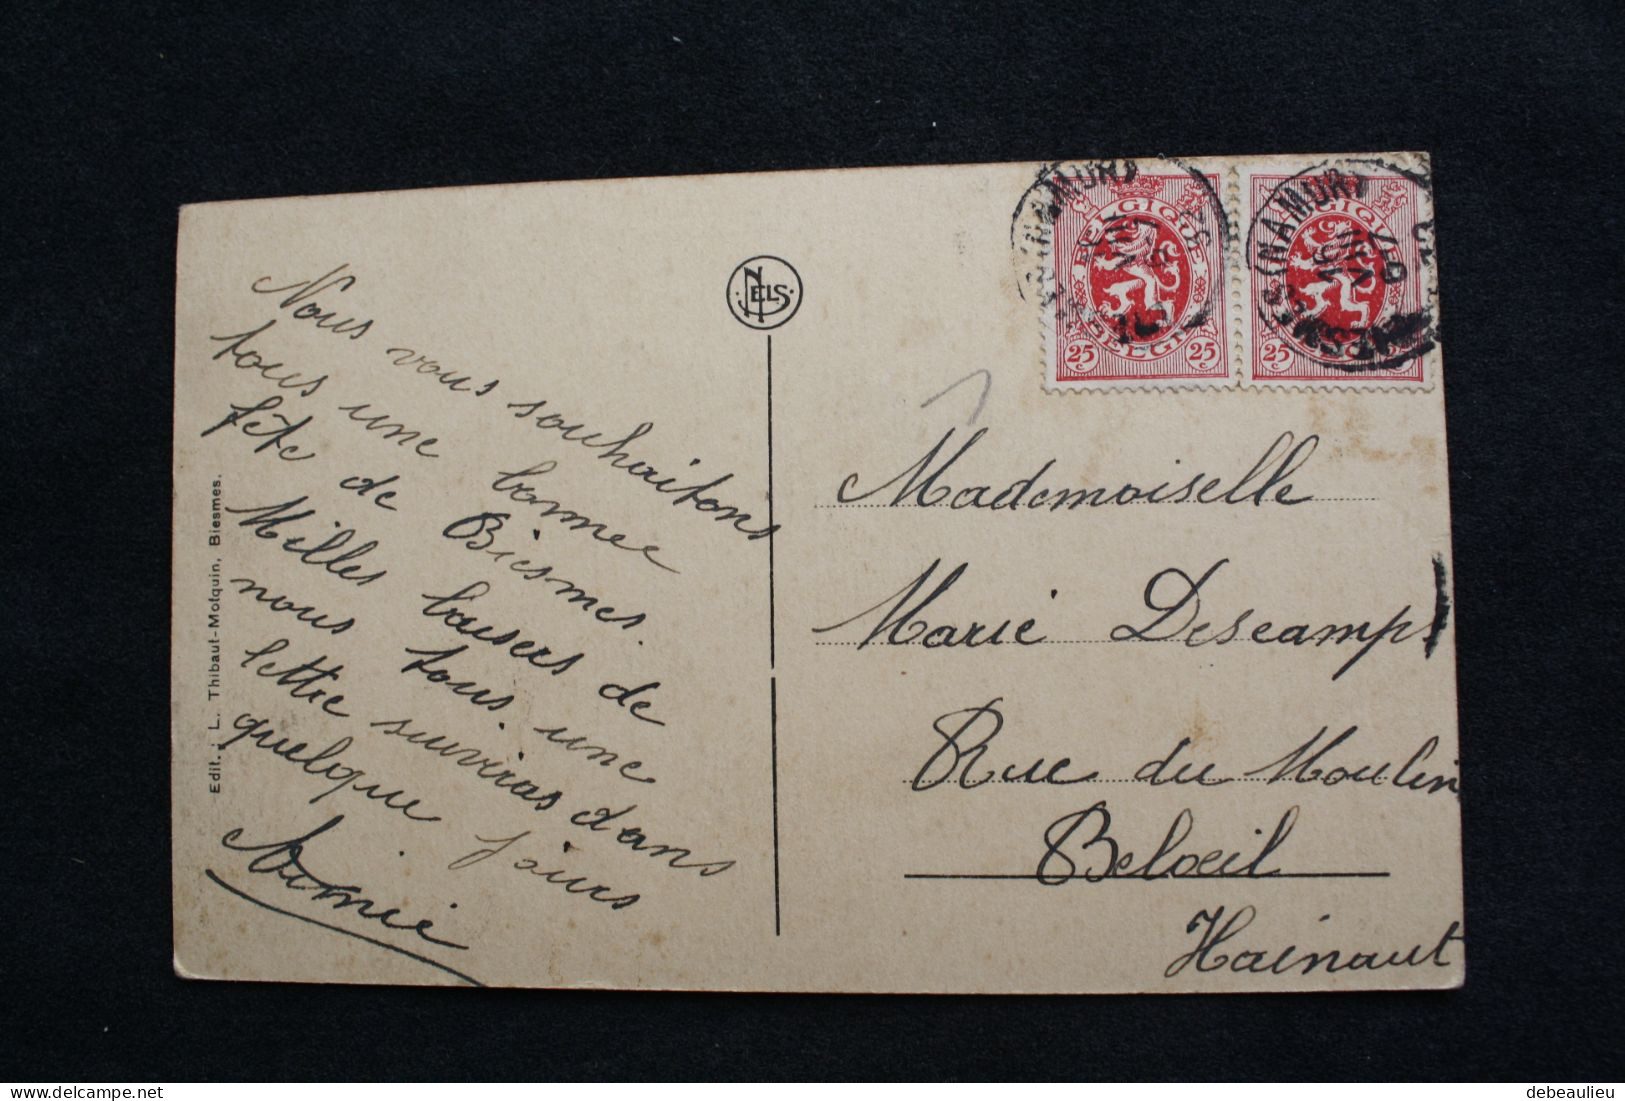 Nous vous souhaitons
tous une bonnee
fête de Biesmes.
Milles baisers de
nous tous. une
lettre suiviras dans
quelque jours
Edit.: L. Thibaut-Motquin, Biesmes.
NELS
(NAMUR)
BELGIQUE
BELGIE
25c 25c
(NAMUR)
25c
Mademoiselle
Marie Descamps
Rue du Moulin
Beloeil
Hainaut
delcampe.net
debeaulieu